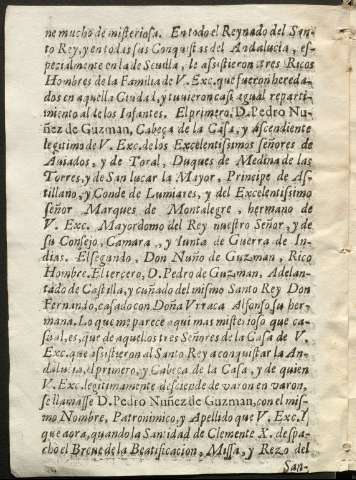 ne mucho de misteriosa. En todo el Reynado del San-
to Rey, y en todas sus Conquistas del Andalucia, es-
pecialmente en la de Seuilla, le assistieron tres Ricos
Hombres de la Familia de V. Exc. que fueron hereda-
dos en aquella Ciudad, y tuuieron casi igual reparti-
miento al de los Infantes. El primero, D. Pedro Nu-
ñez de Guzman, Cabeça de la Casa, y Ascendiente
legitimo de V. Exc. de los Excelentissimos señores de
Auiados, y de Toral, Duques de Medina de las
Torres, y de San lucar la Mayor, Principe de As-
tillano, y Conde de Lumiares, y del Excelentissimo
señor Marques de Montalegre, hermano de
V. Exc. Mayordomo del Rey nuestro Señor, y de
su Consejo, Camara, y Iunta de Guerra de In-
dias. El segundo, Don Nuño de Guzman, Rico
Hombre. El tercero, D. Pedro de Guzman, Adelan-
tado de Castilla, y cuñado del mismo Santo Rey Don
Fernando, casado con Doña Vrraca Alfonso su her-
mana. Lo que me parece aqui mas misterioso que ca-
sual, es, que de aquellos tres Señores de la Casa de V.
Exc. que assistieron al Santo Rey a conquistar la An-
dalucia, el primero, y Cabeça de la Casa, y de quien
V. Exc. legitimamente desciende de varon en varon,
se llamasse D. Pedro Nuñez de Guzman, con el mis-
mo Nombre, Patronimico, y Apellido que V. Exc. Y
que aora, quando la Santidad de Clemente X. despa-
chò el Breue de la Beatificacion, Missa, y Rezo del
San-